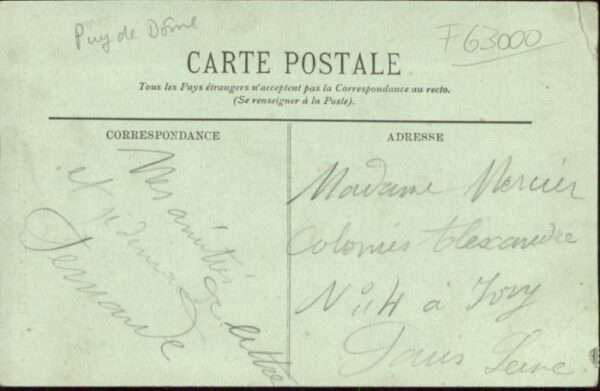 Puy de Dôme
F63000
CARTE POSTALE
Tous les Pays étrangers n'acceptent pas la Correspondance au recto.
(Se renseigner à la Poste).
CORRESPONDANCE
Mes amitiés
et
lettre
ADRESSE
Madame Mercier
Colonies Alexandre
N° 114 à Ivry
Paris Seine